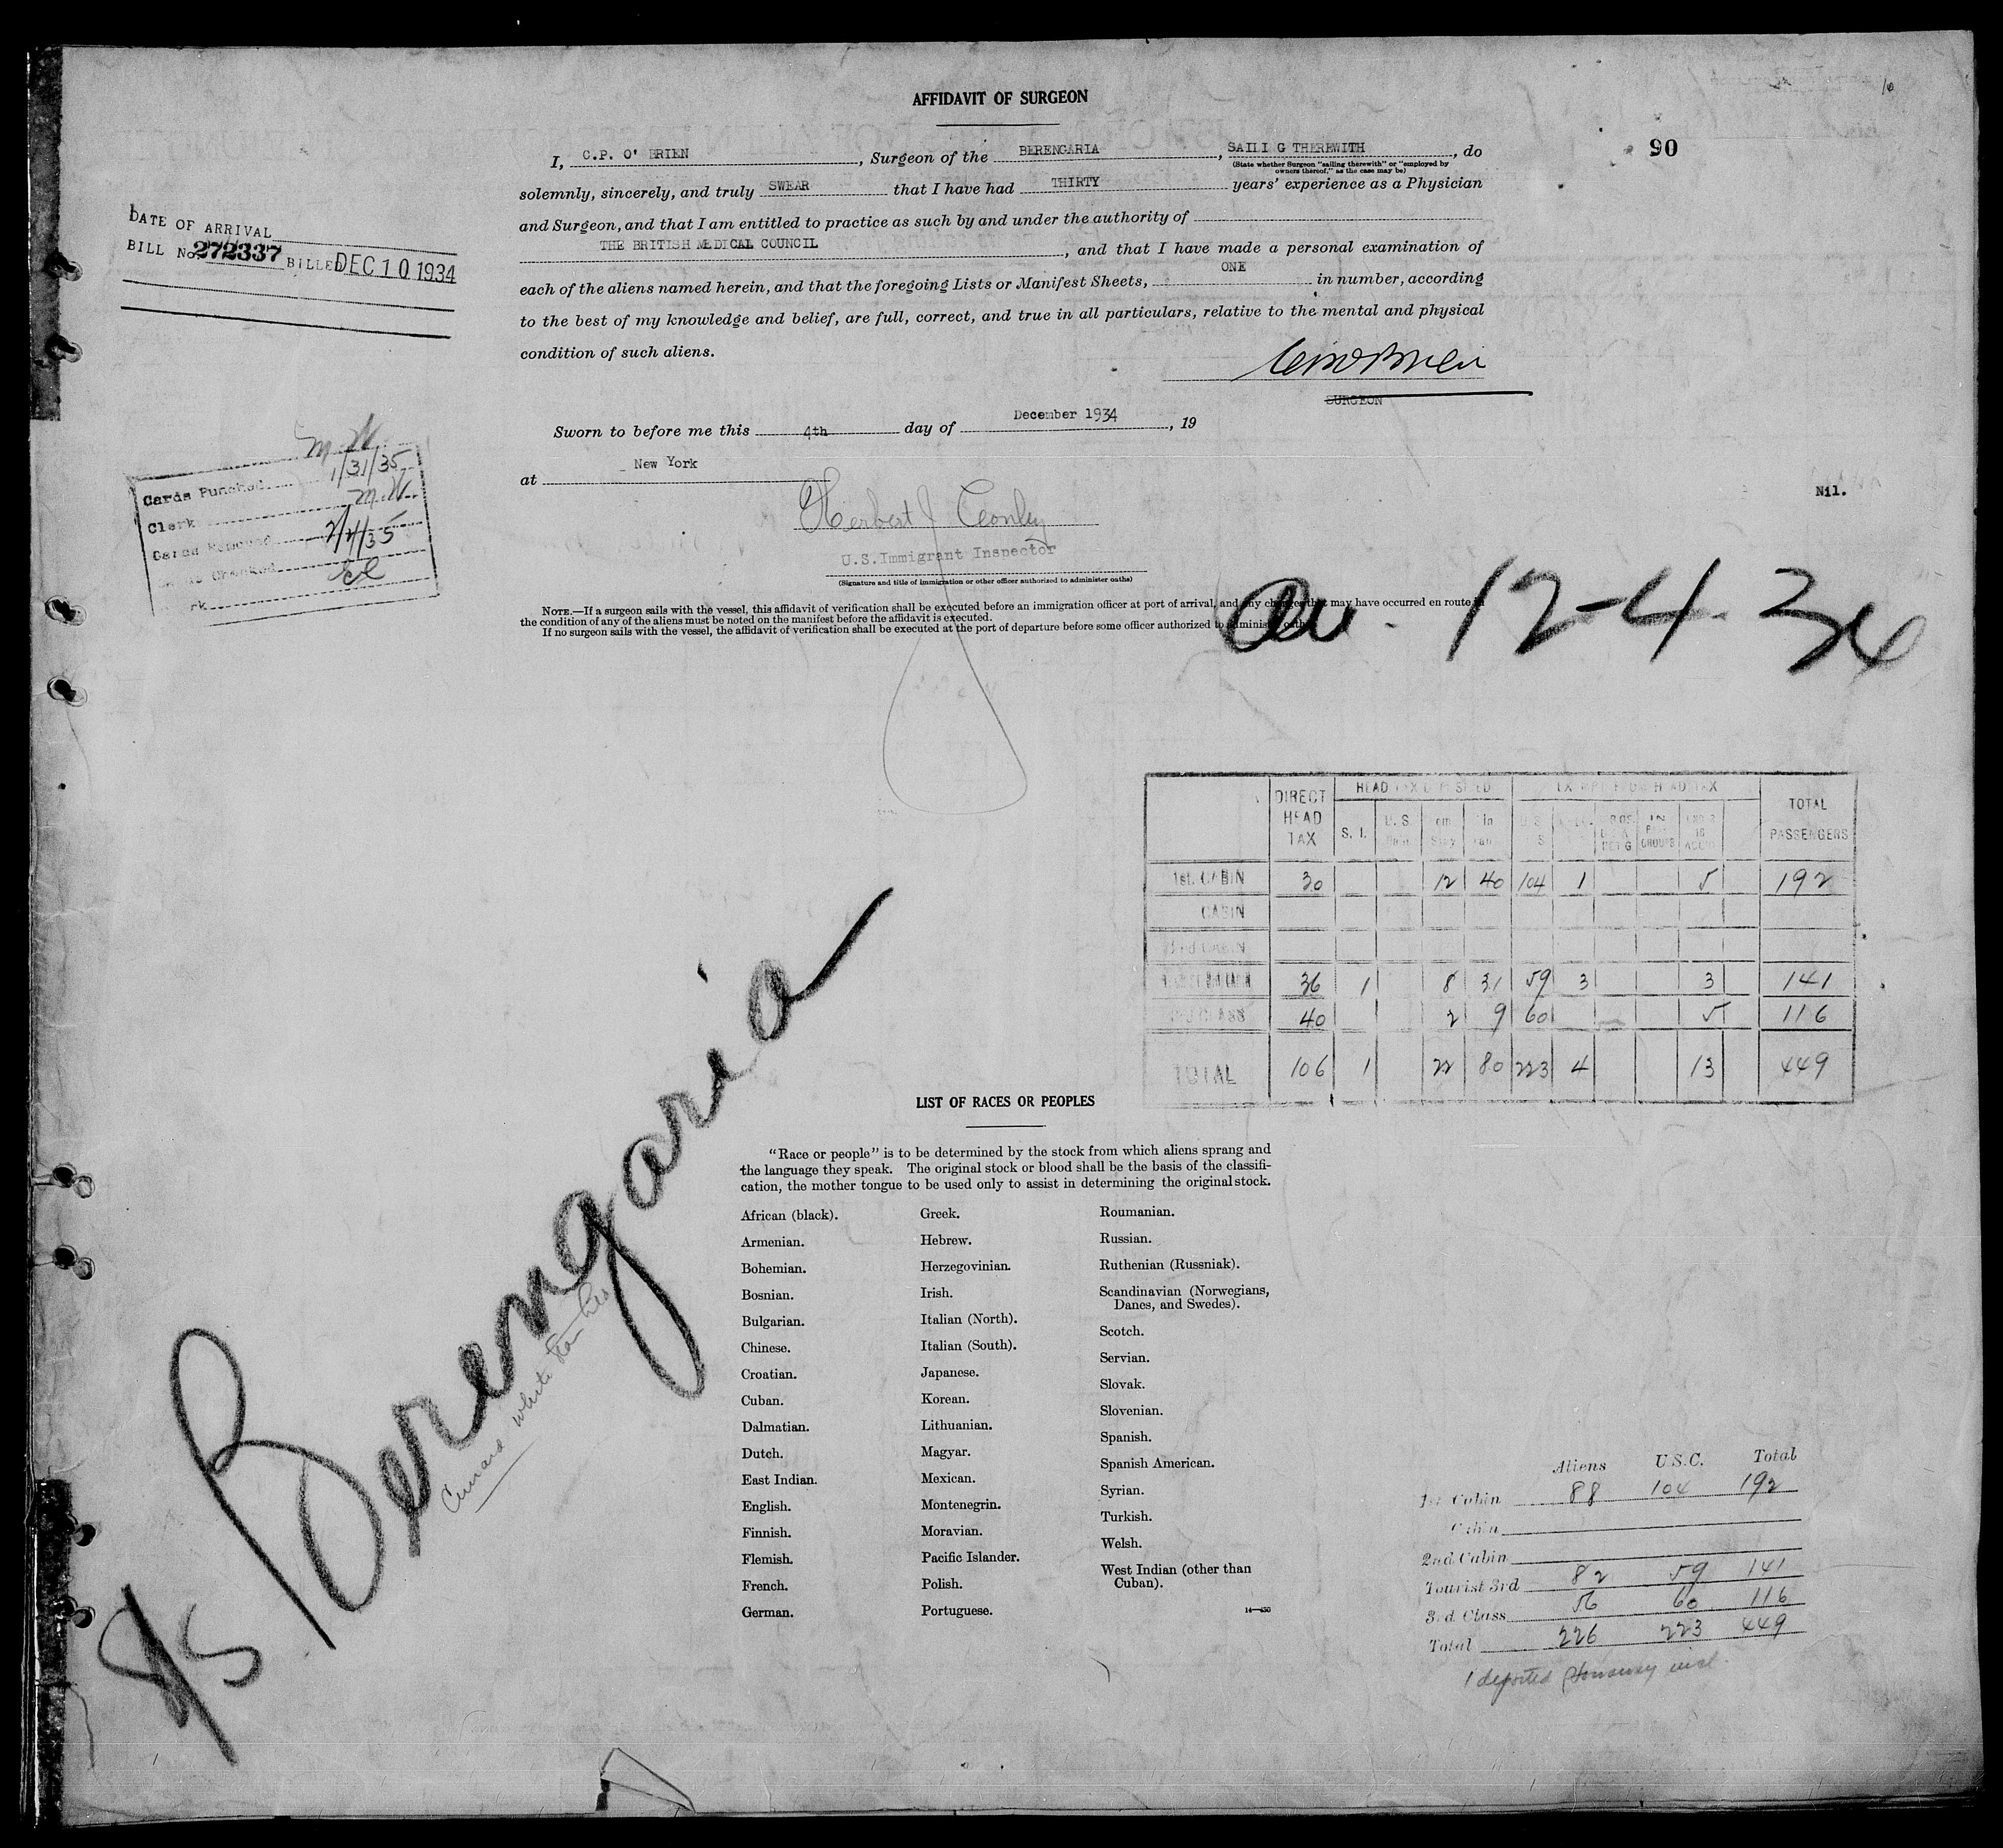 AFFIDAVIT OF SURGEON
90
I, C.P. O' BRIEN, Surgeon of the BERENGARIA, SAILI G THEREWITH, do
(State whether Surgeon "sailing therewith" or "employed by
owners thereof," as the case may be)
solemnly, sincerely, and truly SWEAR that I have had THIRTY years' experience as a Physician
and Surgeon, and that I am entitled to practice as such by and under the authority of
THE BRITISH MEDICAL COUNCIL, and that I have made a personal examination of
each of the aliens named herein, and that the foregoing Lists or Manifest Sheets, ONE in number, according
to the best of my knowledge and belief, are full, correct, and true in all particulars, relative to the mental and physical
condition of such aliens.
SURGEON
DATE OF ARRIVAL
BILL No. 272337 BILLED DEC 10 1934
Sworn to before me this 4th day of December 1934, 19
at New York
Herbert J Conley
U.S. Immigrant Inspector
(Signature and title of immigration or other officer authorized to administer oaths)
Nil.
M.W.
Cards Punched 1/31/35
Clerk M.W.
Cards Removed 2/4/35
Checked
NOTE.—If a surgeon sails with the vessel, this affidavit of verification shall be executed before an immigration officer at port of arrival, and any changes that may have occurred en route in
the condition of any of the aliens must be noted on the manifest before the affidavit is executed.
If no surgeon sails with the vessel, the affidavit of verification shall be executed at the port of departure before some officer authorized to administer oaths.
12-4-34
DIRECT HEAD TAX
S. I.
U. S.
TOTAL PASSENGERS
1st. CABIN 30 12 40 104 1 5 192
CABIN
2nd CABIN
36 1 8 31 59 3 3 141
3rd CLASS 40 2 9 60 5 116
TOTAL 106 1 22 80 223 4 13 449
S/S Berengaria
Cunard White Star Line
LIST OF RACES OR PEOPLES
"Race or people" is to be determined by the stock from which aliens sprang and
the language they speak. The original stock or blood shall be the basis of the classifi-
cation, the mother tongue to be used only to assist in determining the original stock.
African (black).
Armenian.
Bohemian.
Bosnian.
Bulgarian.
Chinese.
Croatian.
Cuban.
Dalmatian.
Dutch.
East Indian.
English.
Finnish.
Flemish.
French.
German.
Greek.
Hebrew.
Herzegovinian.
Irish.
Italian (North).
Italian (South).
Japanese.
Korean.
Lithuanian.
Magyar.
Mexican.
Montenegrin.
Moravian.
Pacific Islander.
Polish.
Portuguese.
Roumanian.
Russian.
Ruthenian (Russniak).
Scandinavian (Norwegians,
Danes, and Swedes).
Scotch.
Servian.
Slovak.
Slovenian.
Spanish.
Spanish American.
Syrian.
Turkish.
Welsh.
West Indian (other than
Cuban).
14—430
Aliens U.S.C. Total
1st Cabin 88 104 192
Cabin
2nd Cabin
Tourist 3rd 82 59 141
3rd Class 56 60 116
Total 226 223 449
1 deported stowaway incl.